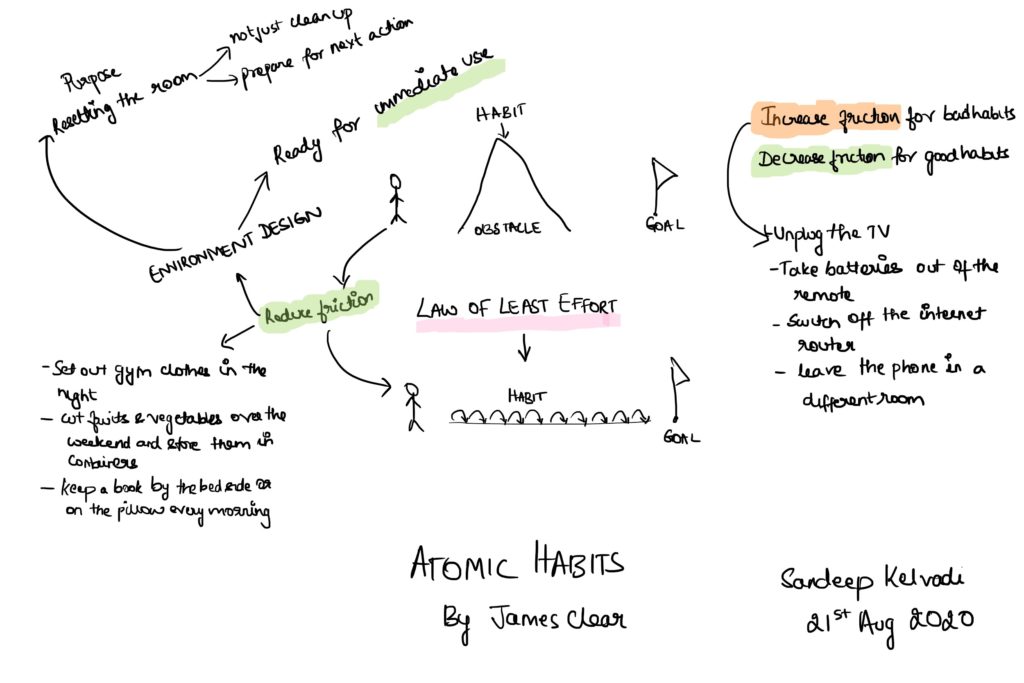 not just clean up
prepare for next action
Purpose
Resetting the room
Ready for immediate use
ENVIRONMENT DESIGN
Reduce friction
- Set out gym clothes in the
night
- cut fruits & vegetables over the
weekend and store them in
containers
- keep a book by the bed side or
on the pillow every morning
HABIT
OBSTACLE
GOAL
LAW OF LEAST EFFORT
HABIT
GOAL
Increase friction for bad habits
Decrease friction for good habits
- Unplug the TV
- Take batteries out of the
remote
- Switch off the internet
router
- leave the phone in a
different room
ATOMIC HABITS
By James Clear
Sandeep Kelvadi
21st Aug 2020